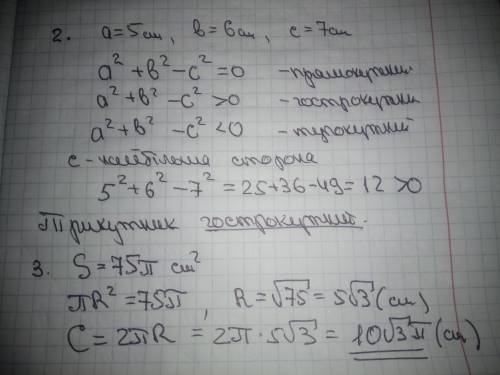 2. a=5см, в=6см, c=7см
a² + в² - c² = 0 - прямокутний
a² + в² - c² > 0 - гострокутний
a² + в² - c² < 0 - тупокутний
c - найбільша сторона
5² + 6² - 7² = 25+36-49 = 12 > 0
Трикутник гострокутний.
3. S = 75π см²
πR² = 75π, R = √75 = 5√3 (см)
C = 2πR = 2π·5√3 = 10√3π (см)